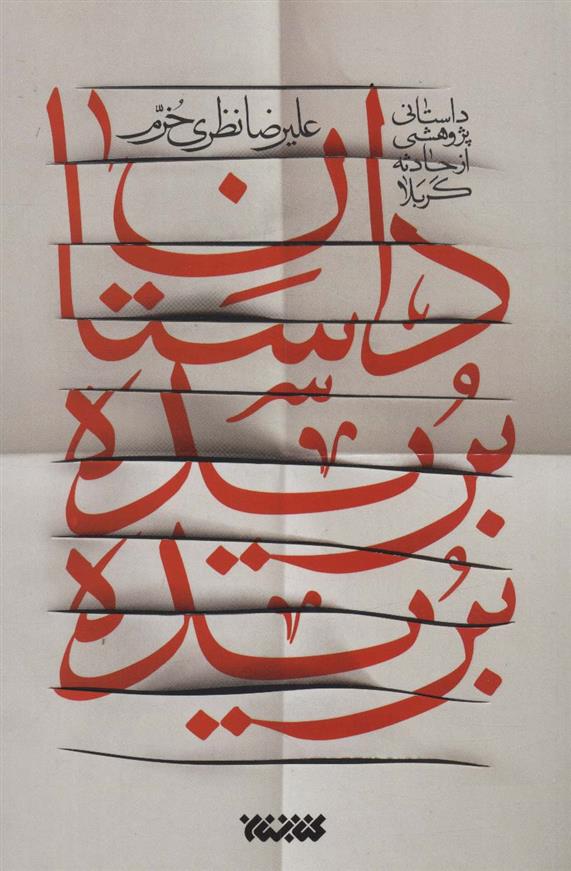 داستانی
پژوهشی
از حادثه
کَربَلا
علیرضا نظری خُرّم
داستان
سر
بُریده
بُریده
کتابستان